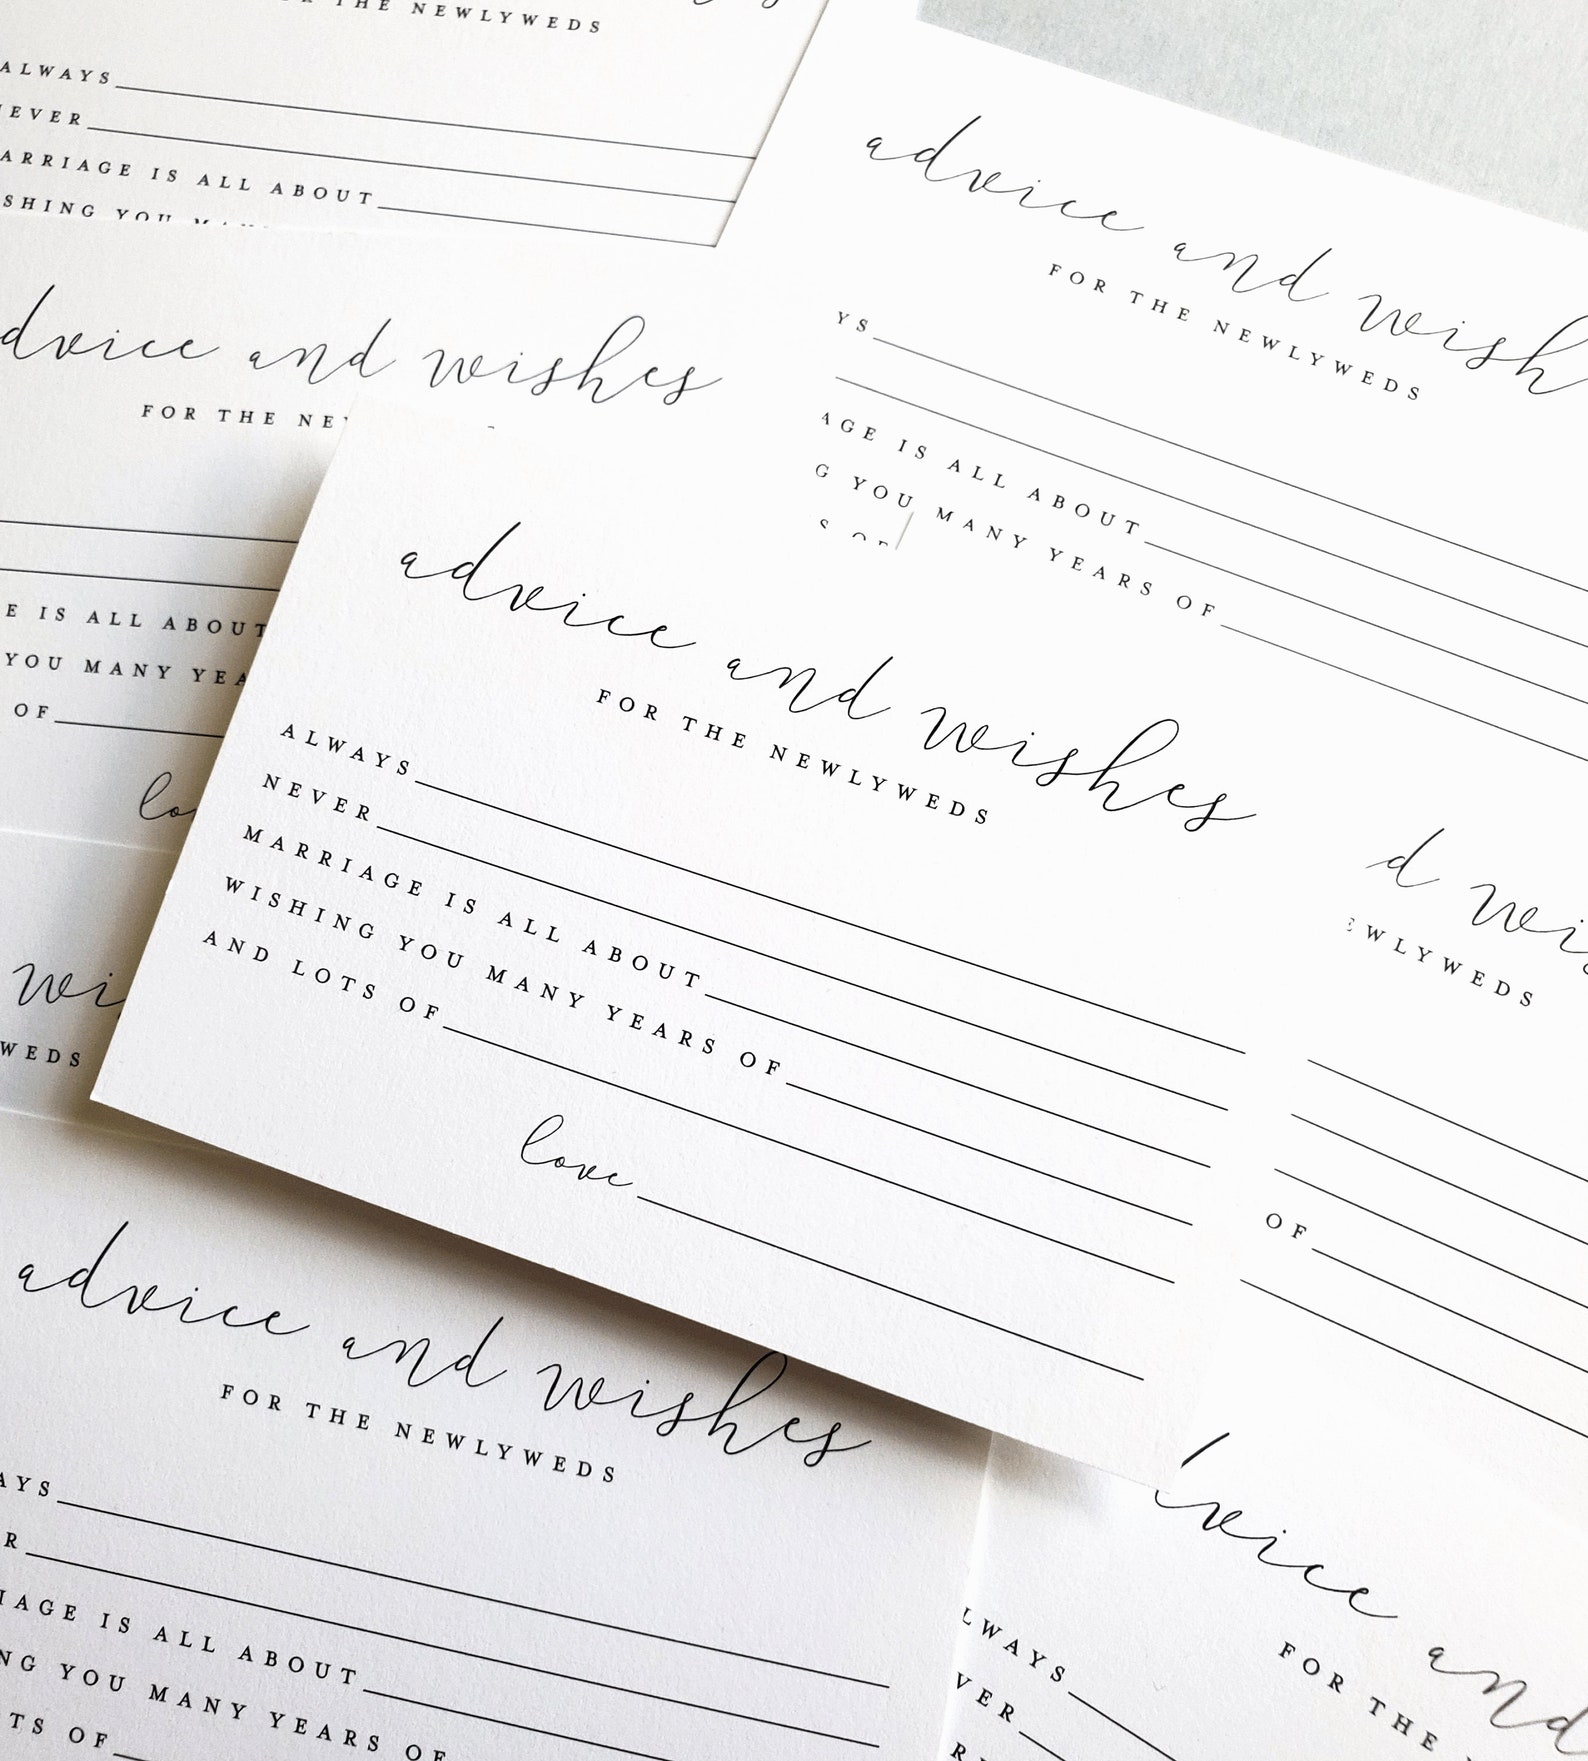 THE NEWLYWEDS
ALWAYS
NEVER
MARRIAGE IS ALL ABOUT
WISHING YOU MANY
advice and wishes
FOR THE NEWLYWEDS
YS
AGE IS ALL ABOUT
G YOU MANY YEARS OF
S OF
advice and wishes
FOR THE NE
E IS ALL ABOUT
YOU MANY YEA
OF
lo
advice and wishes
FOR THE NEWLYWEDS
ALWAYS
NEVER
MARRIAGE IS ALL ABOUT
WISHING YOU MANY YEARS OF
AND LOTS OF
love
d wis
EWLYWEDS
OF
wi
WEDS
advice and wishes
FOR THE NEWLYWEDS
AYS
R
IAGE IS ALL ABOUT
NG YOU MANY YEARS OF
TS OF
dvice and
FOR THE
LWAYS
VER
R